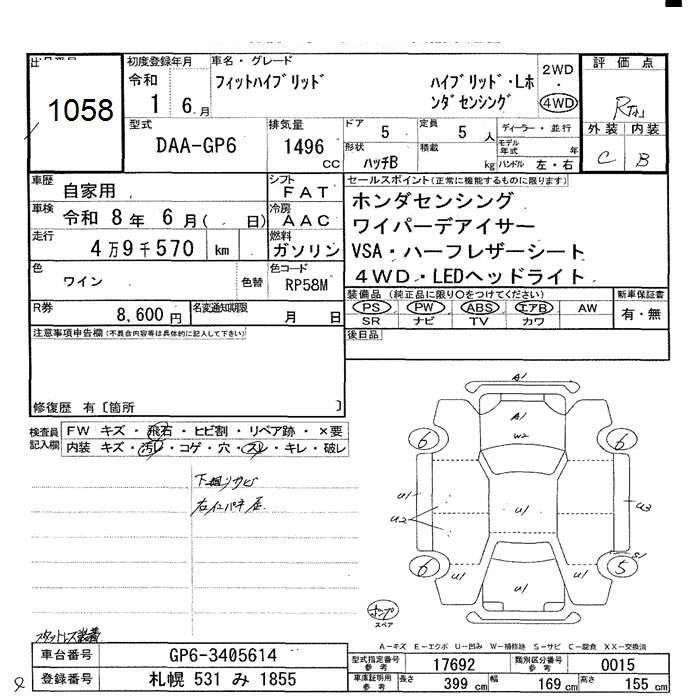 出品番号
1058
初度登録年月
令和
1 6.月
車名・グレード
フィットハイブリッド
ハイブリッド・Lホ
ンダセンシング
2WD
・
4WD
評価点
外装 内装
C B
型式
DAA-GP6
排気量
1496
CC
ドア
5
定員
5 人
形状
ハッチB
積載
kg
ディーラー・並行
モデル年式
年
ハンドル 左・右
車歴
自家用
シフト
FAT
車検
令和 8年 6月( 日)
冷房
AAC
走行
4万9千570 km
燃料
ガソリン
色
ワイン
色替
色コード
RP58M
R券
8,600円
名変通知期限
月 日
セールスポイント(正常に機能するものに限ります)
ホンダセンシング
ワイパーデアイサー
VSA・ハーフレザーシート
4WD・LEDヘッドライト
装備品(純正品に限り○をつけてください)
PS PW ABS エアB AW
SR ナビ TV カワ
新車保証書
有・無
後日品
注意事項申告欄(不具合内容等は具体的に記入して下さい)
修復歴 有〔箇所 〕
検査員
記入欄
FW キズ・飛石・ヒビ割・リペア跡・×要
内装 キズ・汚レ・コゲ・穴・スレ・キレ・破レ
下廻りサビ
スタットレス装着
A1
W2
6
6
U1
U2
U1
U3
6
U1
U1
U1
S1
5
テンプ
スペア
A-キズ E-エクボ U-凹み W-補修跡 S-サビ C-腐食 XX-交換済
車台番号
GP6-3405614
登録番号
札幌 531 み 1855
型式指定番号
参考
17692
類別区分番号
参考
0015
車庫証明用
参考
長さ
399 cm
幅
169 cm
高さ
155 cm